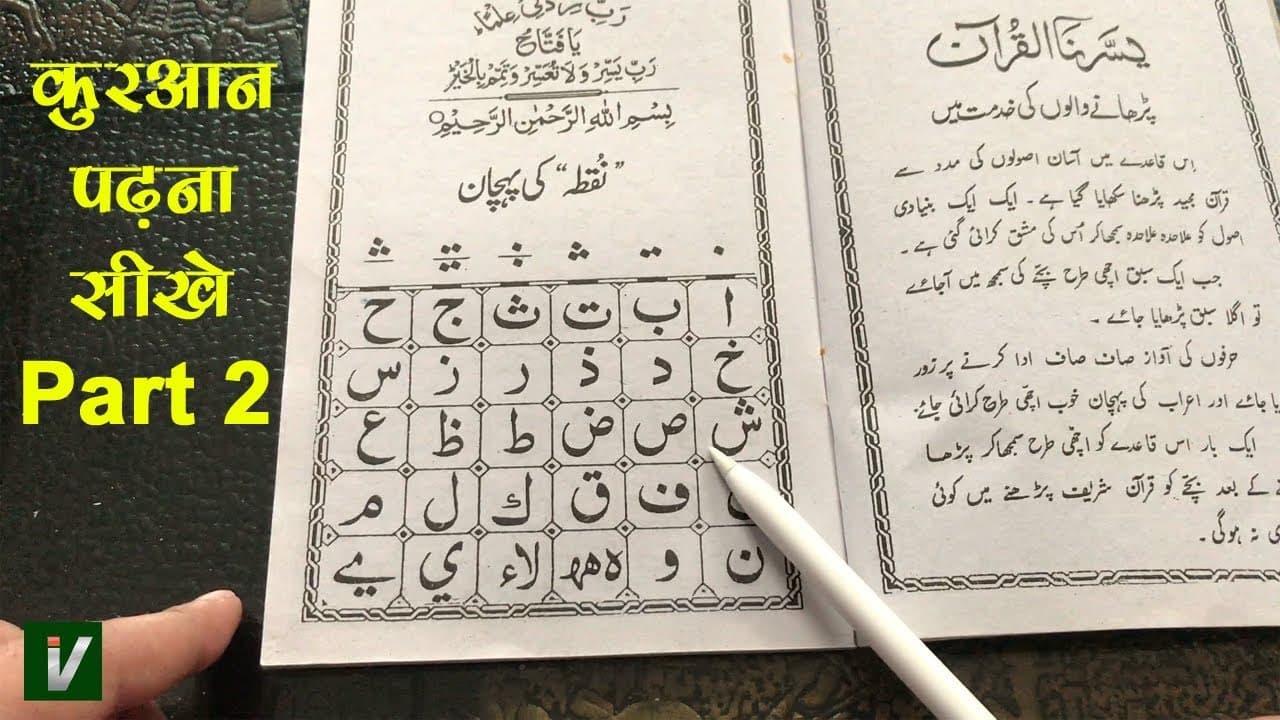 कुरआन
पढ़ना
सीखे
Part 2
رَبِّ زِدْنِیْ عِلْمًا
یَا فَتَّاحُ
رَبِّ یَسِّرْ وَلَا تُعَسِّرْ وَتَمِّمْ بِالْخَیْرْ
بِسْمِ اللّٰہِ الرَّحْمٰنِ الرَّحِیْمِ
”نُقطہ“ کی پہچان
ا ب ت ث ج ح
خ د ذ ر ز س
ش ص ض ط ظ ع
ف ق ك ل م
ن و ه‍ھ لاء ي ے
یسّرنا القُرآن
پڑھانے والوں کی خدمت میں
اِس قاعدے میں آسان اصولوں کی مدد سے
قرآن مجید پڑھنا سکھایا گیا ہے۔ ایک ایک بنیادی
اصول کو علاحدہ علاحدہ سمجھاکر اُس کی مشق کرائی گئی ہے۔
جب ایک سبق اچّھی طرح بچّے کی سمجھ میں آجائے
تو اگلا سبق پڑھایا جائے۔
حرفوں کی آواز صاف صاف ادا کرنے پر زور
جائے اور اعراب کی پہچان خوب اچّھی طرح کرائی جائے۔
ایک بار اس قاعدے کو اچّھی طرح سمجھاکر پڑھا
کے بعد بچّے کو قرآن شریف پڑھنے میں کوئی
نہ ہوگی۔
iV